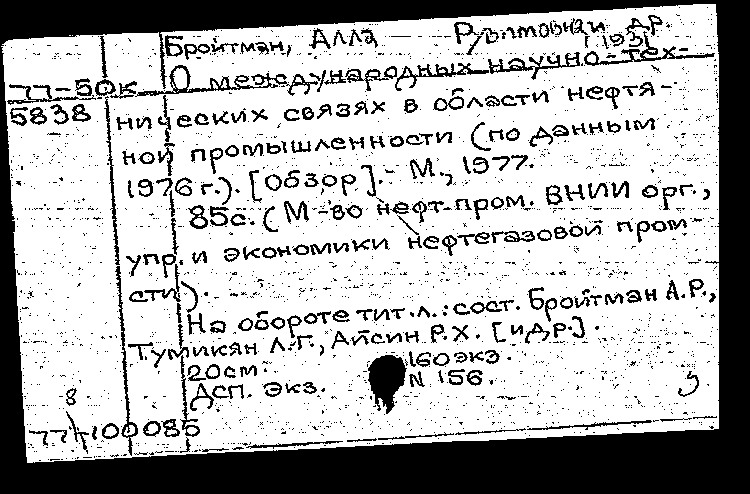 Бройтман, Алла Рувимовна и др.
1931
77-50к О международных научно-тех-
5838 нических связях в области нефтя-
ной промышленности (по данным
1976 г.). [Обзор].- М., 1977.
85с. (М-во нефт. пром. ВНИИ орг.,
упр. и экономики нефтегазовой пром-
сти).
На обороте тит.л.: сост. Бройтман А.Р.,
Тумикян Л.Г., Айсин Р.Х. [и др.].
20см. 160 экз.
ДСП. Экз. N 156.
8 9
77-100085